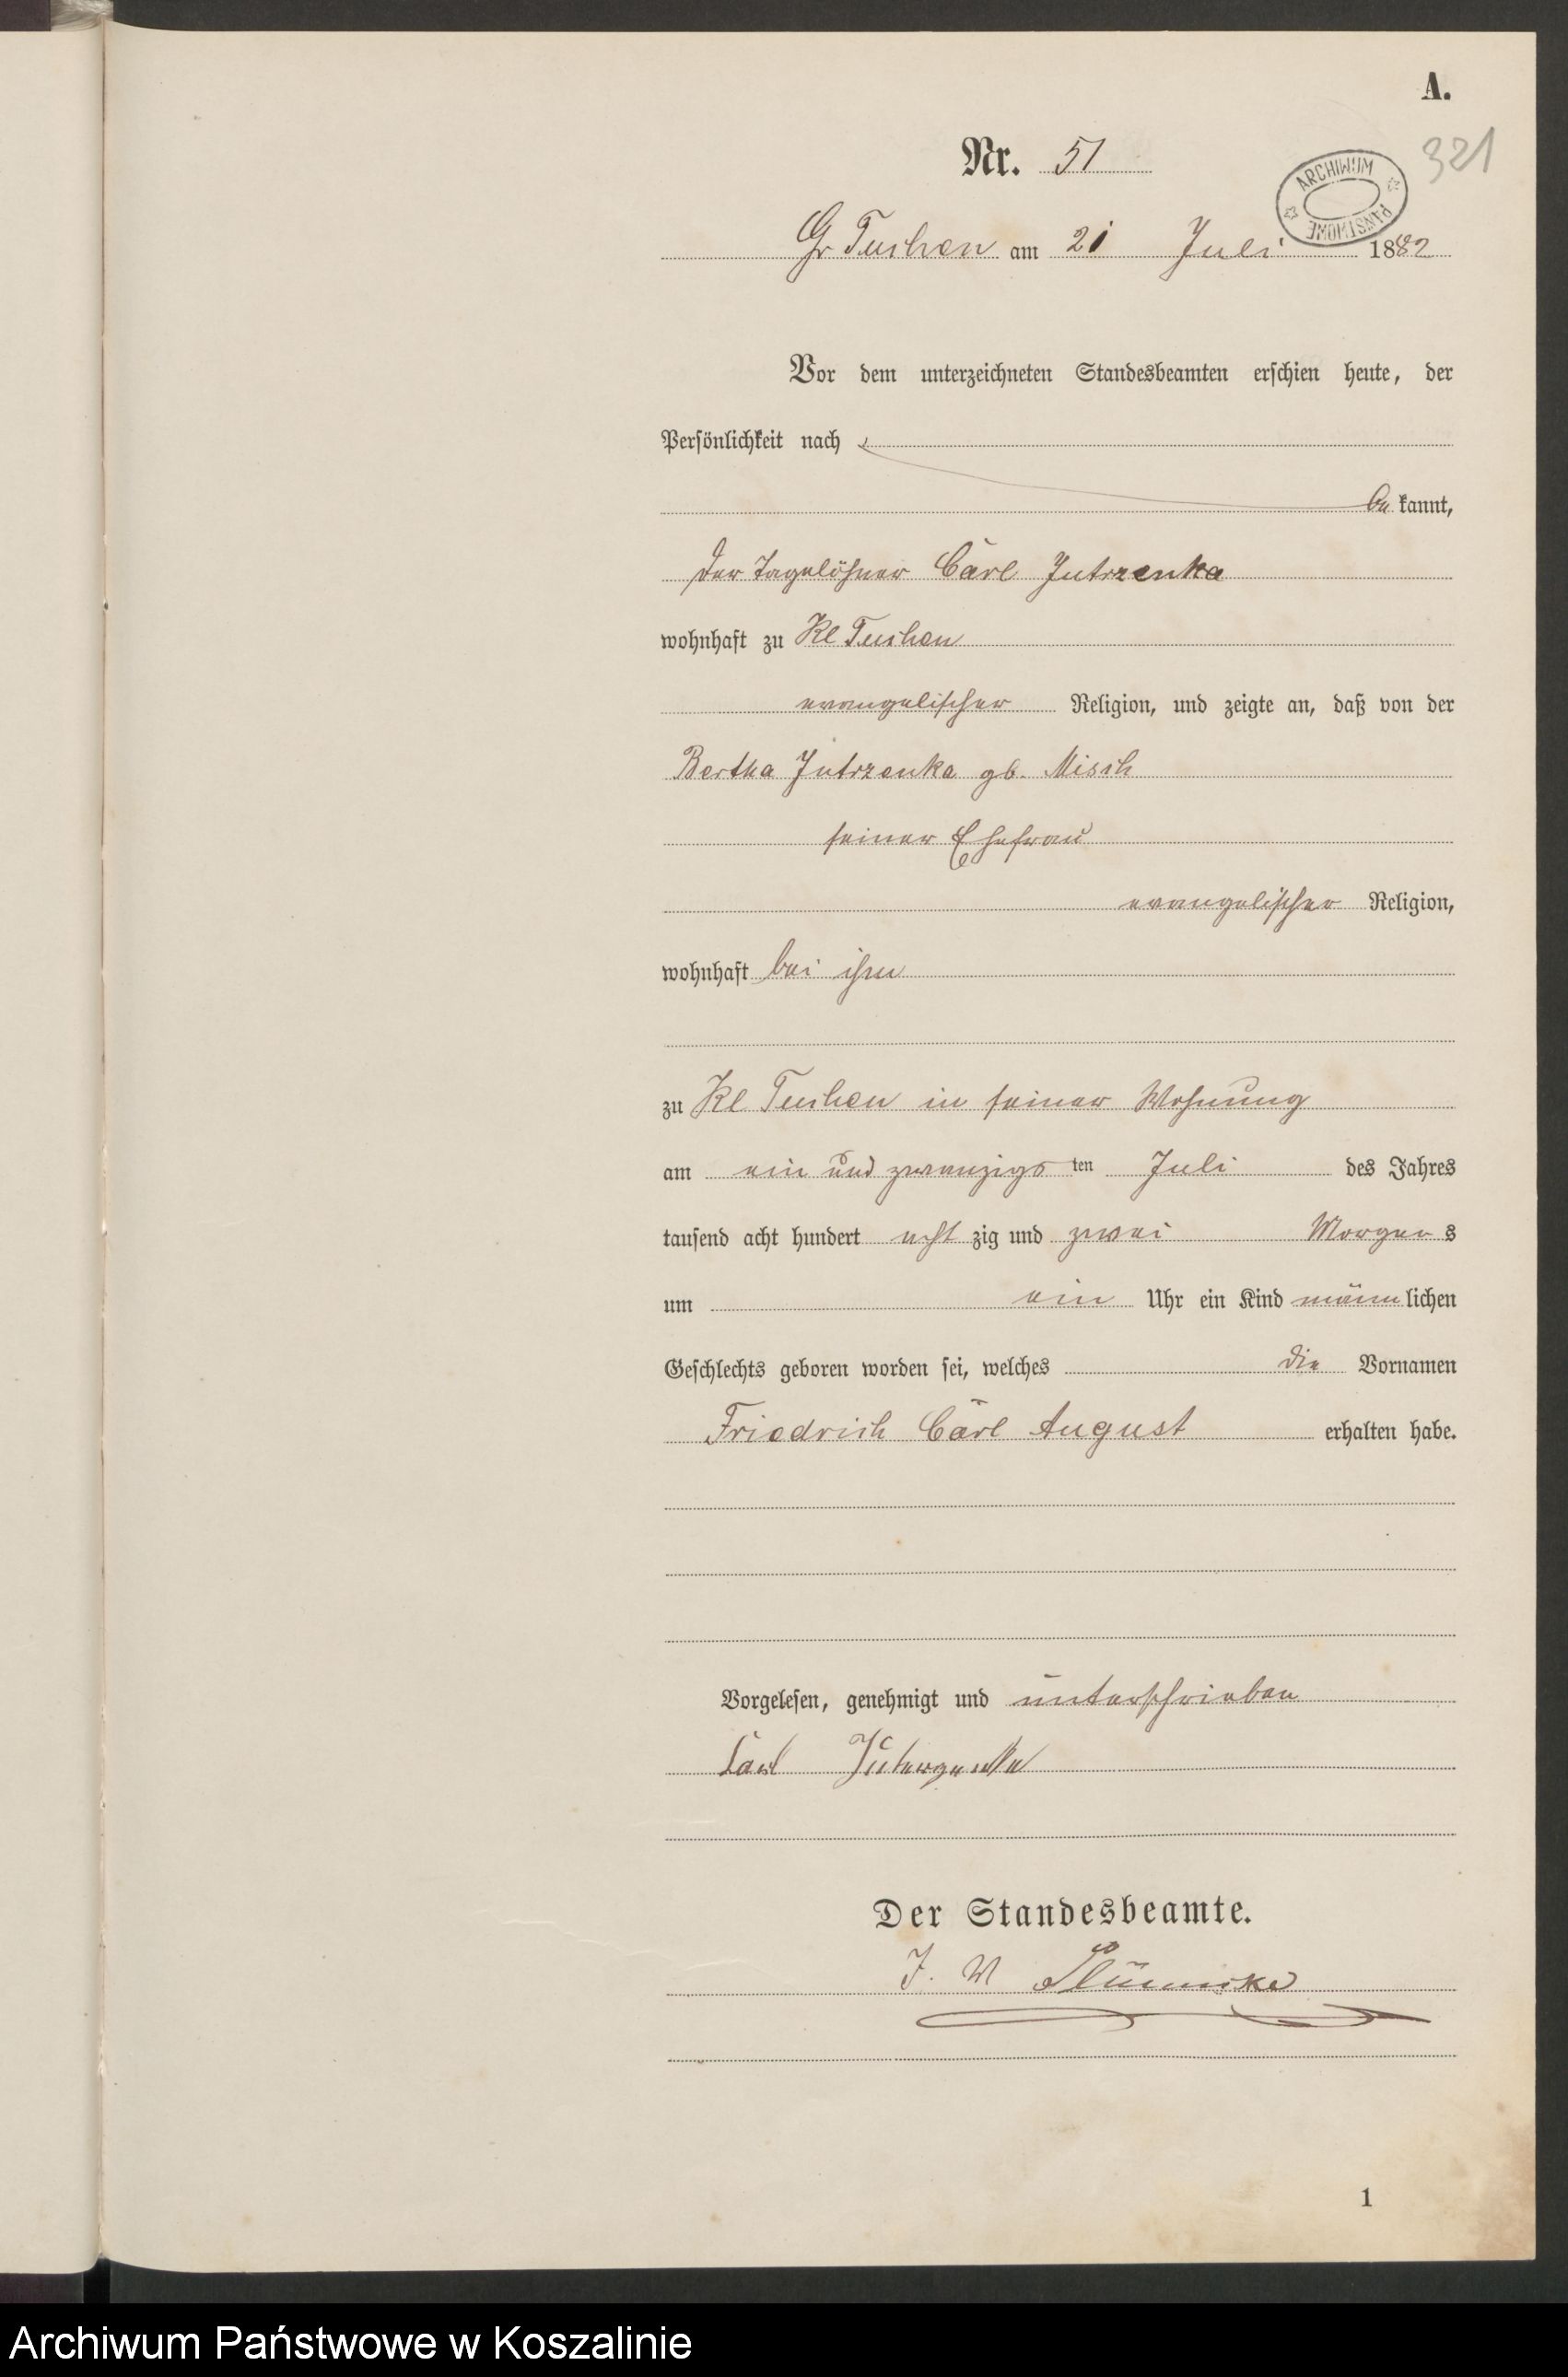 A.
Nr. 51
321
ARCHIWUM PAŃSTWOWE
Gr Tuchen am 21 Juli 1882
Vor dem unterzeichneten Standesbeamten erschien heute, der
Persönlichkeit nach
be kannt,
der Tagelöhner Carl Jutrzenka
wohnhaft zu Kl Tuchen
evangelischer Religion, und zeigte an, daß von der
Bertha Jutrzenka gb. Misch
seiner Ehefrau
evangelischer Religion,
wohnhaft bei ihm
zu Kl Tuchen in seiner Wohnung
am ein und zwanzigs ten Juli des Jahres
tausend acht hundert acht zig und zwei Morgen s
um ein Uhr ein Kind männ lichen
Geschlechts geboren worden sei, welches die Vornamen
Friedrich Carl August erhalten habe.
Vorgelesen, genehmigt und unterschrieben
Carl
Der Standesbeamte.
1
Archiwum Państwowe w Koszalinie